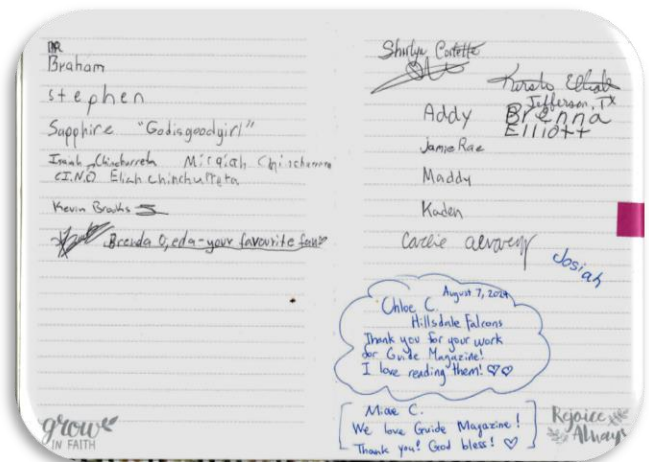 Braham
stephen
Sapphire "Godisgoodgirl"
Isaiah Chinchurreta
Elijah Chinchurreta
Kevin Brooks
Brenda Ojeda - your favourite fan
grow
IN FAITH
Shirlyn
Elliott
Jefferson, TX
Brenna
Elliott
Addy
Jamie Rae
Maddy
Kaden
Carlie
Josiah
August 7, 2024
Chloe C.
Hillsdale Falcons
Thank you for your work
for Guide Magazine!
I love reading them! ♡♡
Miae C.
We love Guide Magazine!
Thank you! God bless! ♡
Rejoice
Always